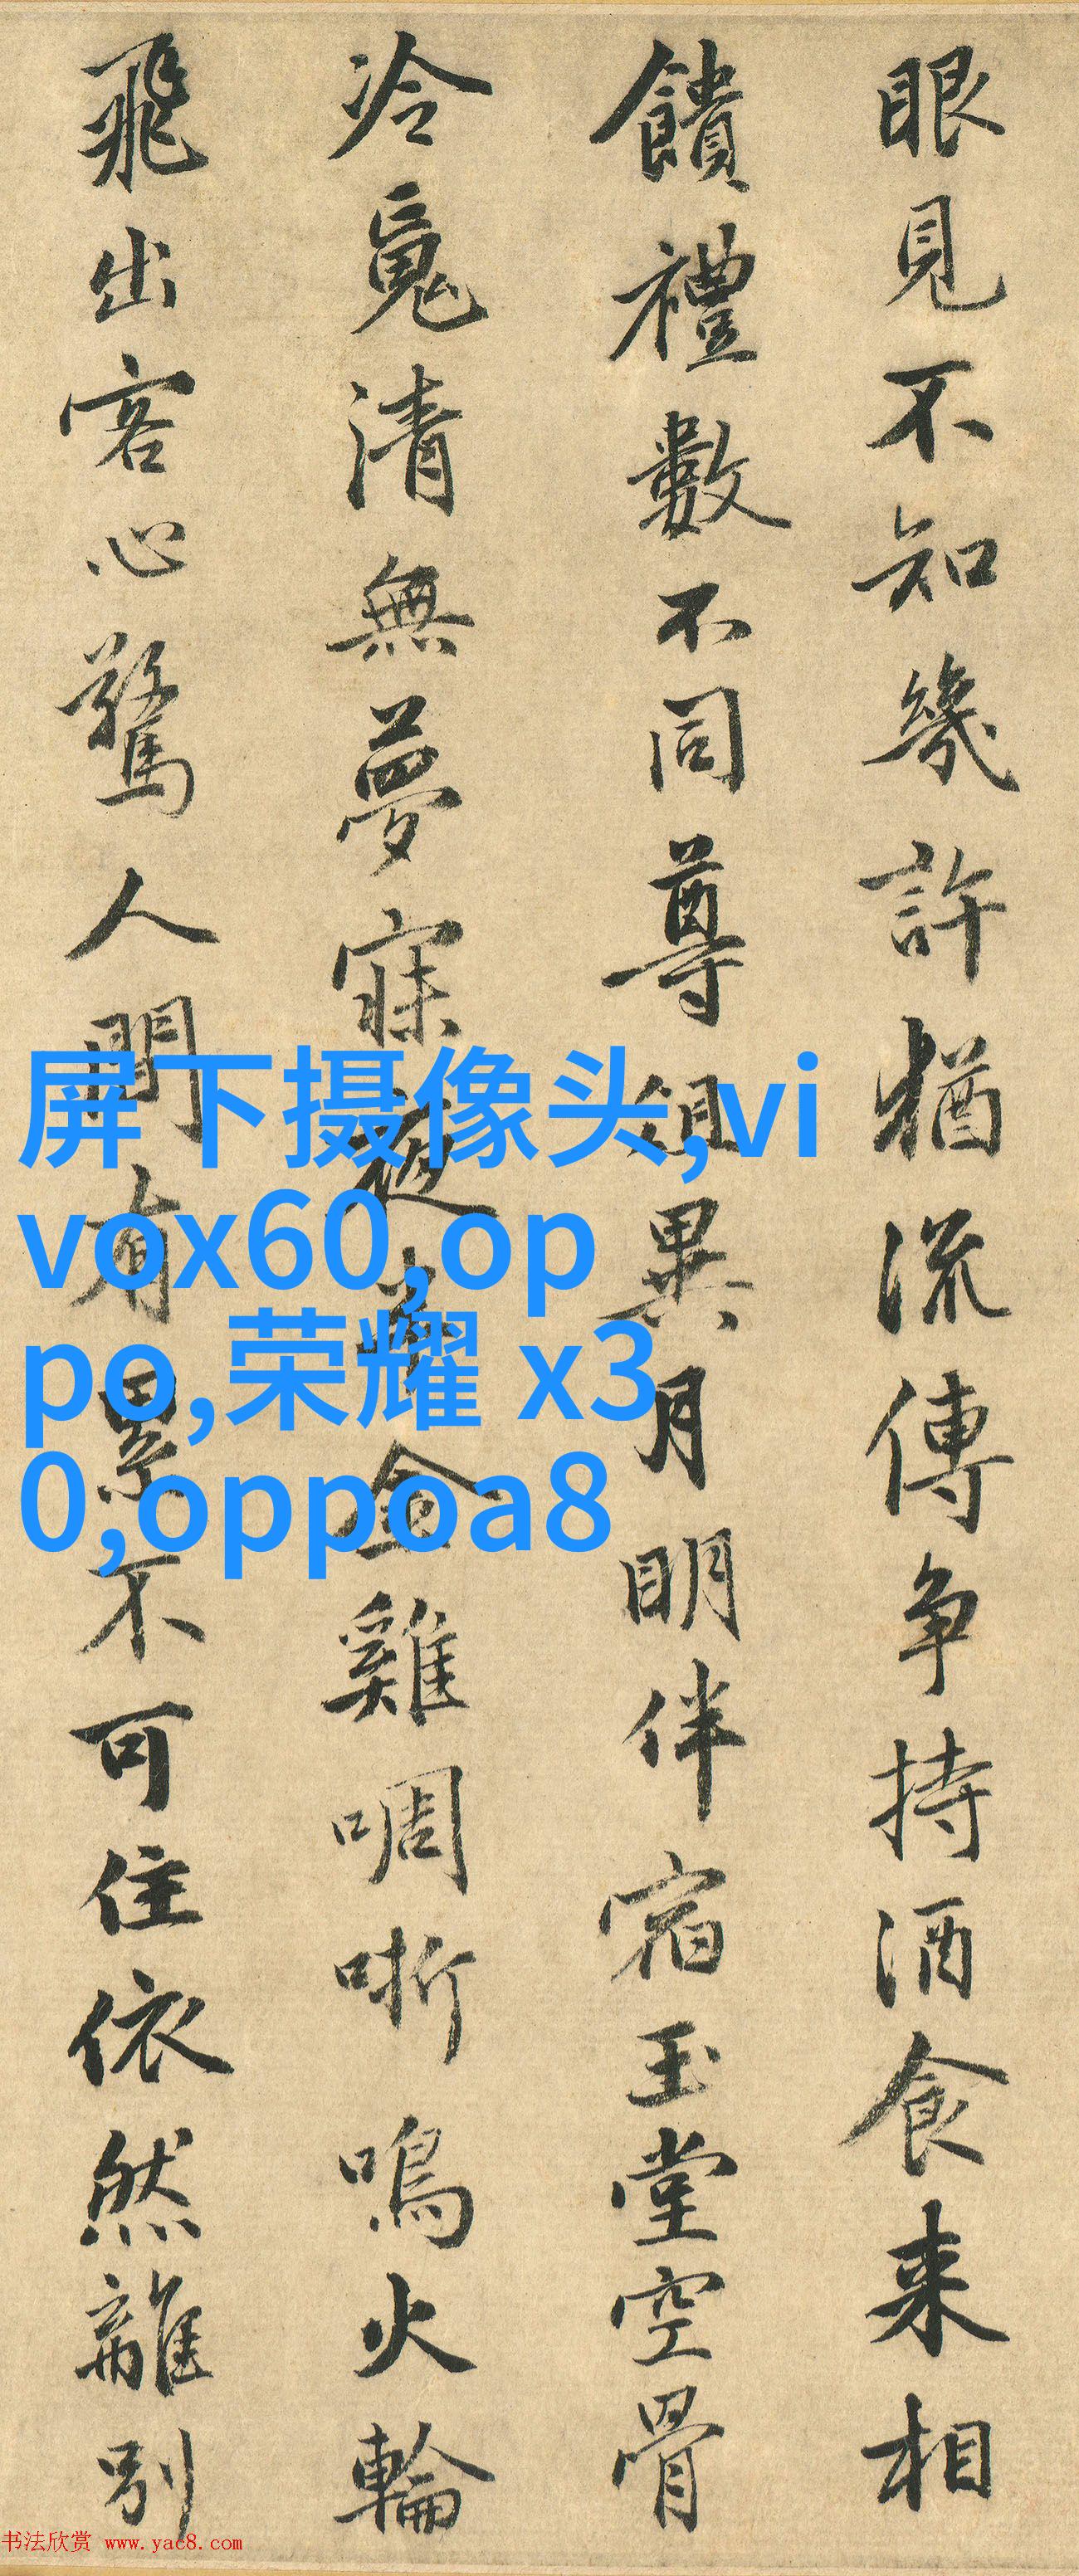 眼見不知幾許猶流傳争持酒食来相
饋禮數不同尊俎異月明伴宿玉堂空骨
冷魂清無夢寐夜半金雞啁哳鳴火輪
飛出客心驚人間有累不可住依然離別
屏下摄像头,vi
vox60,op
po,荣耀 x3
0,oppoa8
书法欣赏 www.yac8.com